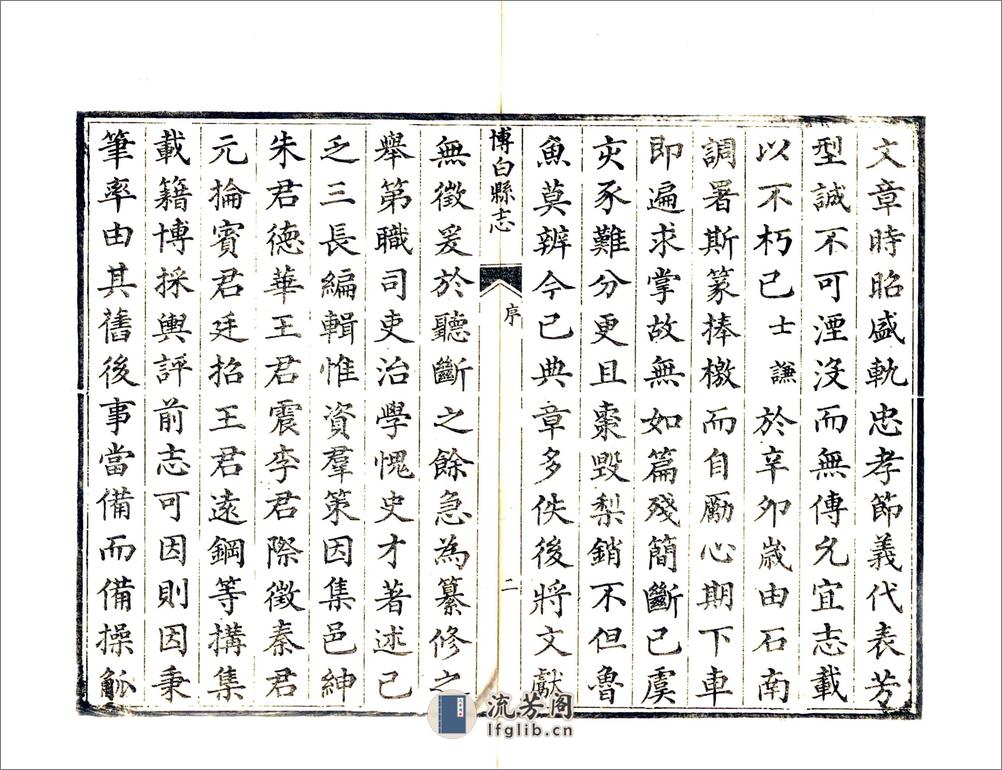 文章時昭盛軌忠孝節義代表芳
型誠不可湮沒而無傳允宜志載
以不朽已士謙於辛卯歲由石南
調署斯篆捧檄而自勵心期下車
即遍求掌故無如篇殘簡斷已虞
亥豕難分更且棗毀梨銷不但魯
魚莫辨今已典章多佚後將文獻
博白縣志
序
二
無徵爰於聽斷之餘急為纂修之
舉第職司吏治學愧史才著述已
乏三長編輯惟資羣策因集邑紳
朱君德華王君震李君際徵秦君
元掄賓君廷招王君遠鋼等搆集
載籍博採輿評前志可因則因秉
筆率由其舊後事當備而備操觚
流芳阁
lfglib.cn